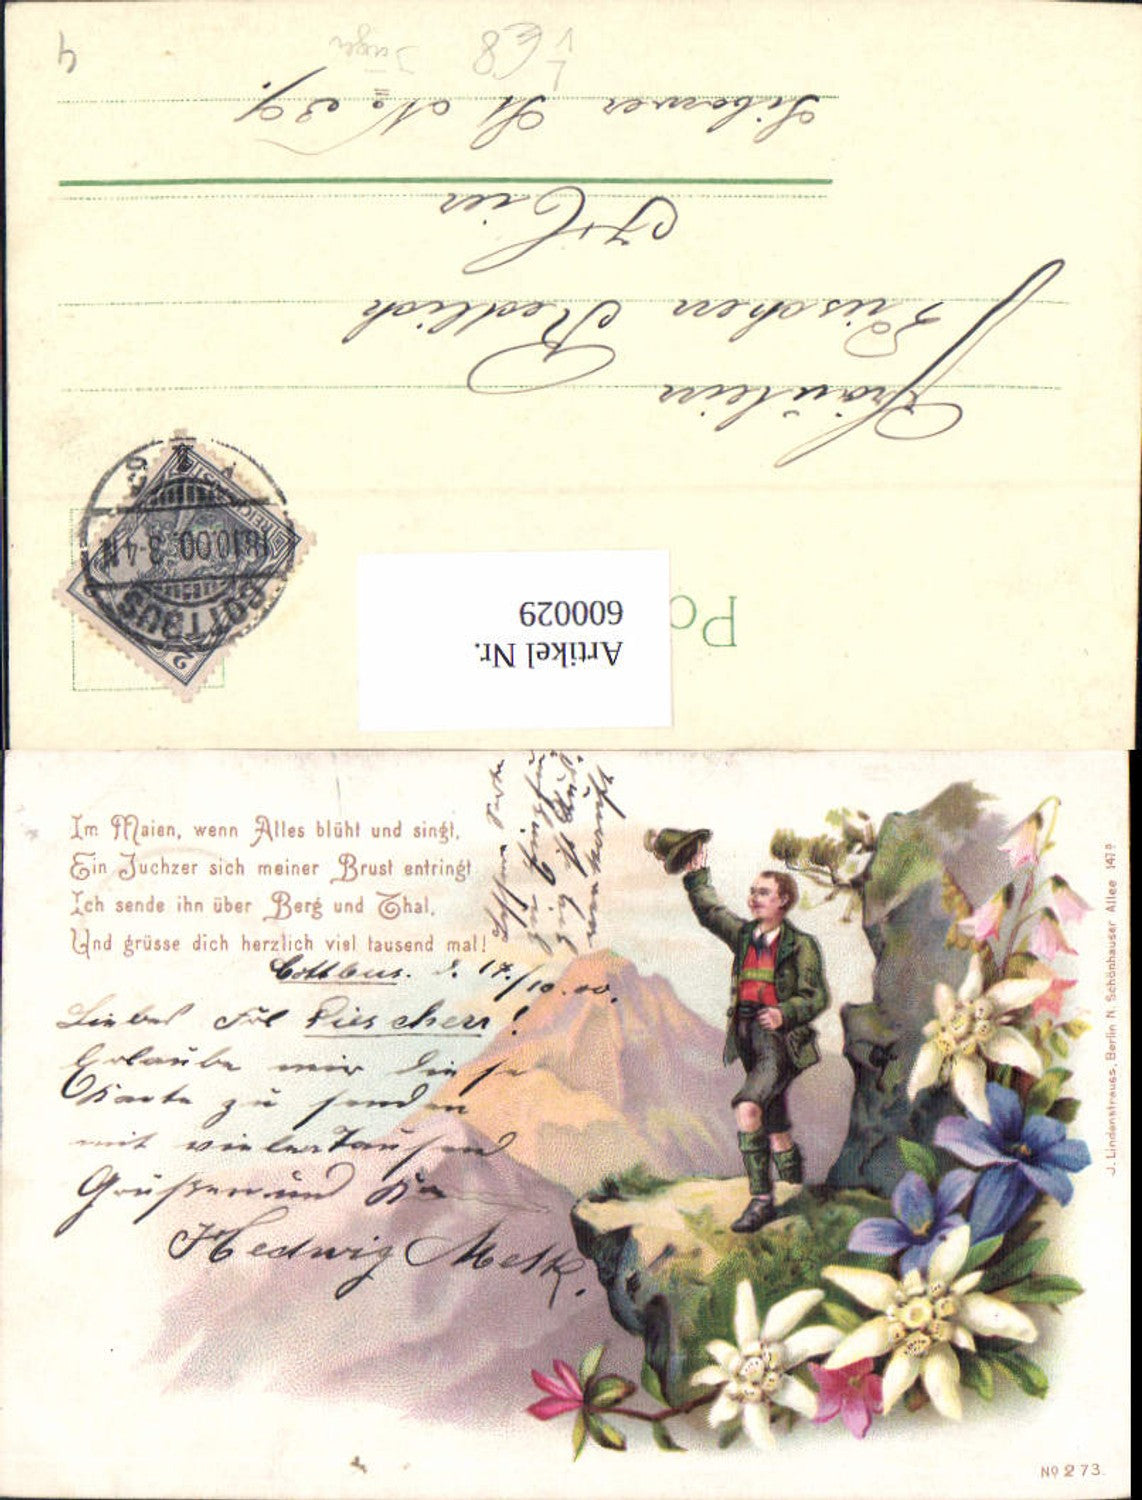 Po
Artikel Nr.
600029
COTTBUS
18.10.00. 3-4 N
REICHSPOST
2
Fräulein
Lieschen Redlich
Hier
Sibower St No 39.
4
Im Maien, wenn Alles blüht und singt,
Ein Juchzer sich meiner Brust entringt
Ich sende ihn über Berg und Thal,
Und grüsse dich herzlich viel tausend mal!
Cottbus. d. 17./10.00.
Liebes Frl Lieschen!
Erlaube mir diese
Karte zu senden
mit vieler Tausend
Grüßen und
Hedwig
J. Lindenstrauss, Berlin N. Schönhauser Allee 147 B
No 273.